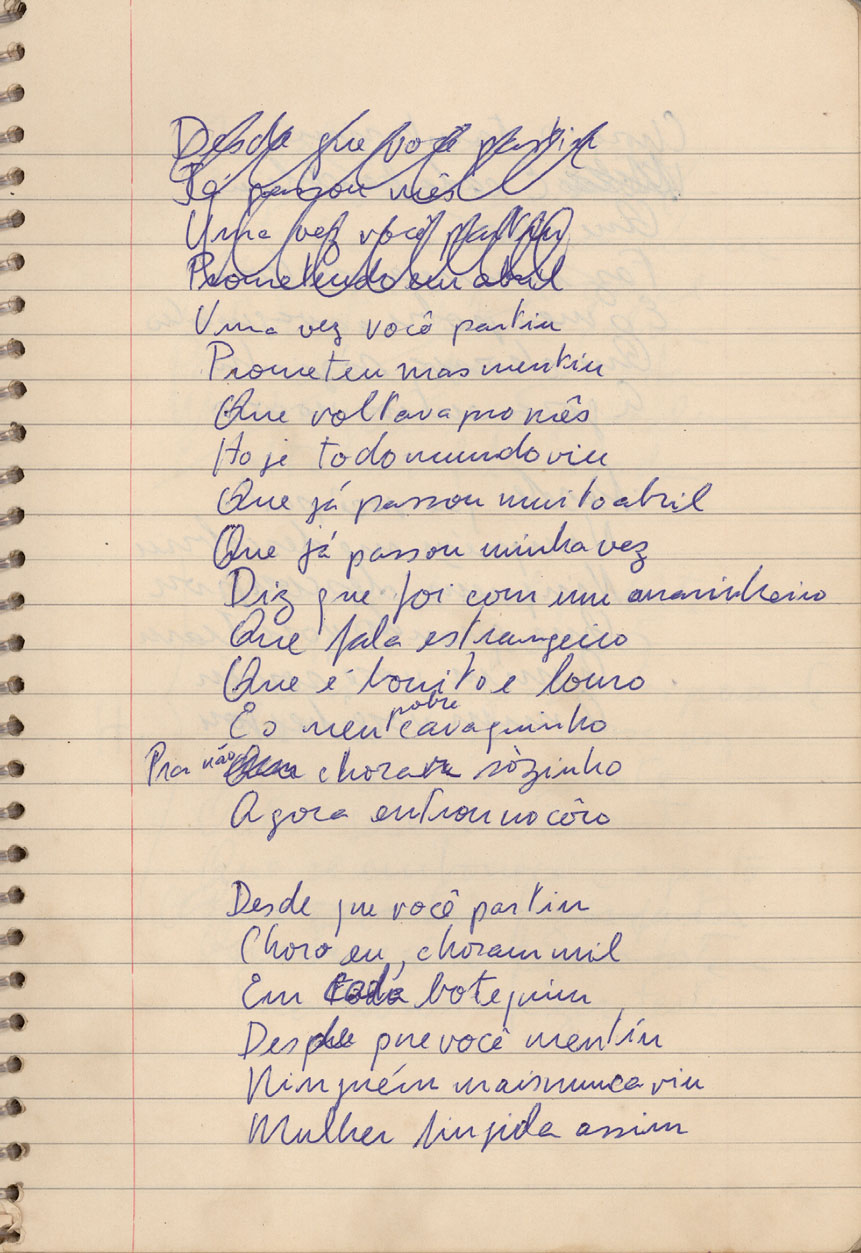 Desde que você partiu
Já passou mês
Uma vez você partiu
Prometendo em abril
Uma vez você partiu
Prometeu mas mentiu
Que voltava pro mês
Hoje todo mundo viu
Que já passou muito abril
Que já passou minha vez
Diz que foi com um marinheiro
Que fala estrangeiro
Que é bonito e louro
E o meu pobre cavaquinho
Pra não chorar sòzinho
Agora entrou no côro
Desde que você partiu
Choro eu, choram mil
Em cada botequim
Desde que você mentiu
Ninguém mais nunca viu
Mulher fingida assim